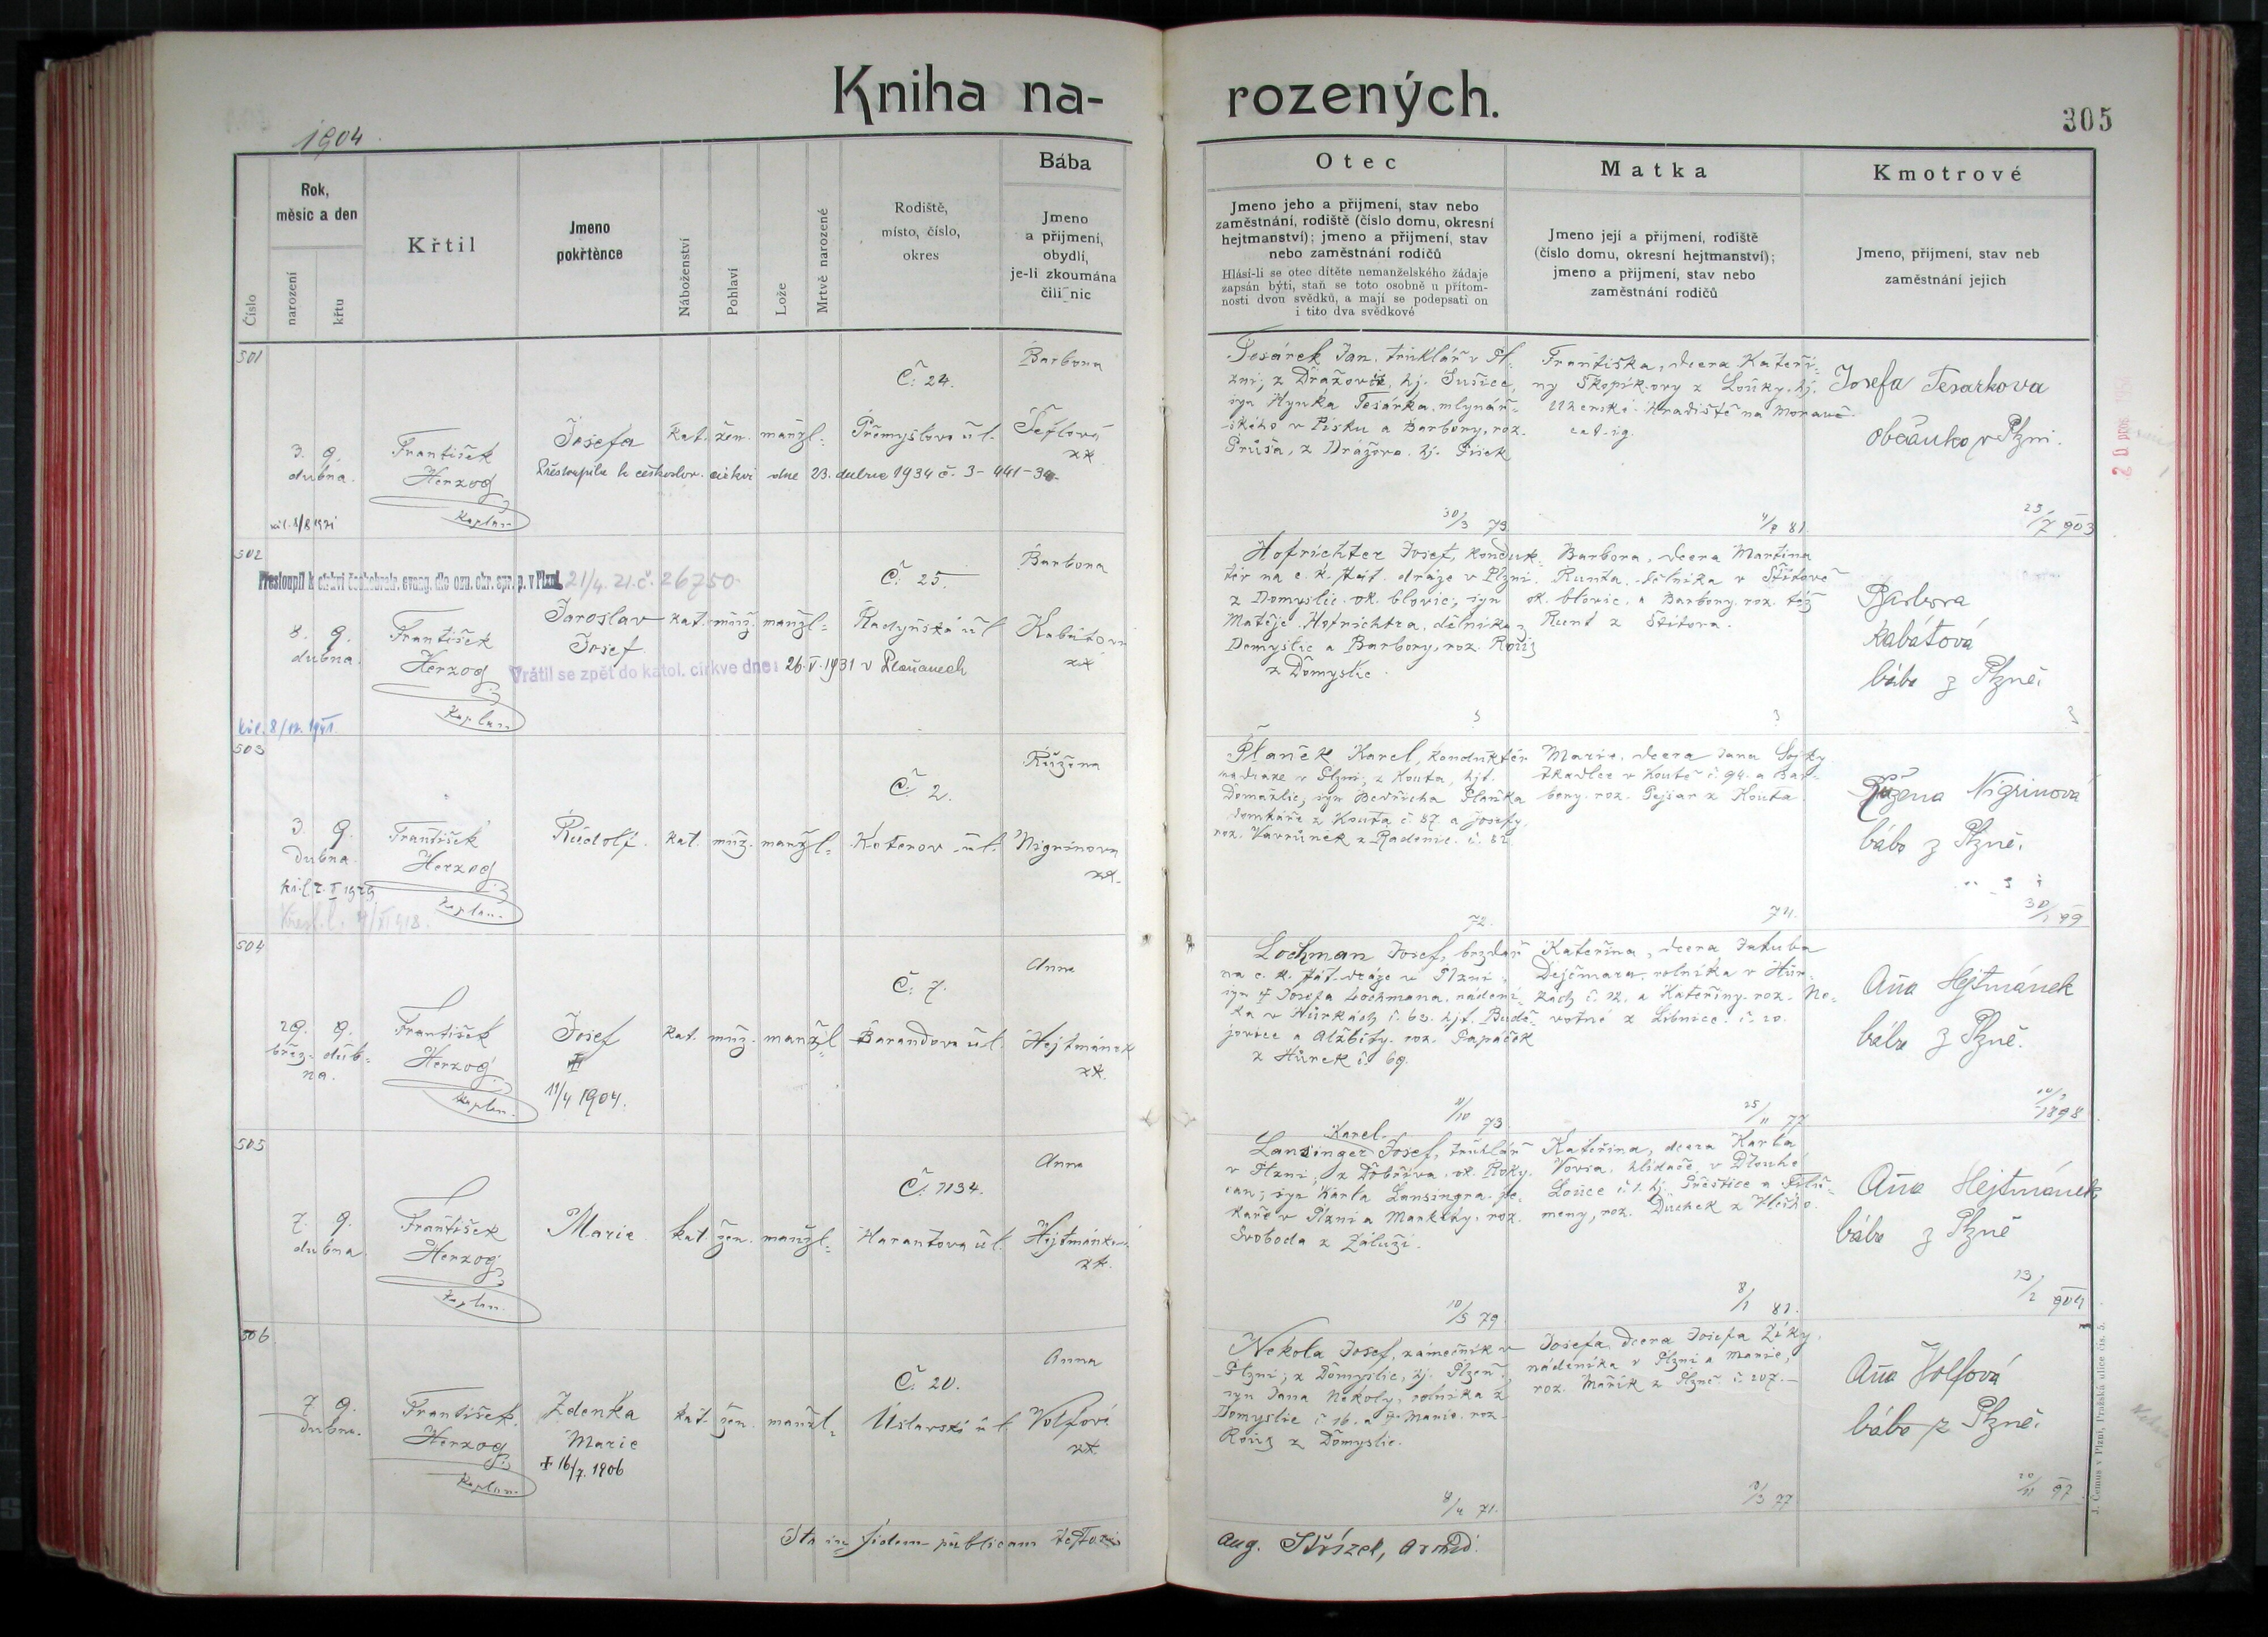 Kniha na-
rozených.
305
1904
Číslo
Rok,
měsíc a den
narození
křtu
Křtil
Jmeno
pokřtěnce
Náboženství
Pohlaví
Lože
Mrtvě narozené
Rodiště,
místo, číslo,
okres
Bába
Jmeno
a přijmení,
obydlí,
je-li zkoumána
čili nic
Otec
Jmeno jeho a přijmení, stav nebo
zaměstnání, rodiště (číslo domu, okresní
hejtmanství); jmeno a přijmení, stav
nebo zaměstnání rodičů
Hlásí-li se otec dítěte nemanželského žádaje
zapsán býti, staň se toto osobně u přítom-
nosti dvou svědků, a mají se podepsati on
i tito dva svědkové
Matka
Jmeno její a přijmení, rodiště
(číslo domu, okresní hejtmanství);
jmeno a přijmení, stav nebo
zaměstnání rodičů
Kmotrové
Jmeno, přijmení, stav neb
zaměstnání jejich
501
3. 9.
dubna.
František
Herzog
kaplan
Josefa
kat. žen. manžl.
Č. 24.
Přemyslova ul.
Barbora
Šeflová
zk.
Přestoupila k českoslov. církvi dne 23. dubna 1934 č. 3-441-34.
Tesárek Jan, truhlář v Pl-
zni, z Dražovic, hj. Sušice,
syn Hynka Tesárka, mlynář-
ského v Písku a Barbory, roz.
Průša, z Drážova. hj. Písek
30/3 79.
Františka, dcera Kateři-
ny Škopíkovy z Louky, hj.
Uherské Hradiště na Moravě.
Josefa Tesarkova
občanka v Plzni.
23/7 903
502
Přestoupil k církvi českobratr. evang. dle ozn. okr. spr. p. v Plzni 21/4. 21. č. 26750.
8. 9.
dubna.
František
Herzog
kaplan
Jaroslav
Josef
kat. muž. manžl.
Č. 25.
Radyňská ul.
Barbora
Kabátová
zk.
Vrátil se zpět do katol. církve dne: 26.V.1931 v Plaňanech
Hofrichter Josef, konduk-
tér na c. k. stát. dráze v Plzni,
z Domyslic ok. blovic, syn
Matěje Hofrichtra, dělníka z
Domyslic a Barbory, roz. Rouš
z Domyslic.
Barbora, dcera Martina
Runta, dělníka v Štítově
ok. blovic, a Barbory roz. též
Runt z Štítova.
Barbora
Kabátová
bába z Plzně.
503
3. 9.
dubna.
František
Herzog
kaplan.
Rudolf.
kat. muž. manžl.
Č. 2.
Koterov. ul.
Růžena
Nigrinova
zk.
Planěk Karel, konduktér
na dráze v Plzni, z Kouta, hjt.
Domažlic, syn Bedřicha Plaňka
domkáře z Kouta č. 87. a Josefy,
roz. Vavrůněk z Radonic.
72.
Marie, dcera Jana Sojky
tkadlce v Koutě č. 94. a Bar-
bory. roz. Pejsar z Kouta.
74.
Růžena Nigrinová
bába z Plzně.
504
29. 9.
břez- dub-
na.
František
Herzog
kaplan.
Josef
11/4 1904.
kat. muž. manžl.
Č. 7.
Barandova ul.
Anna
Hejtmánek
zk.
Lochman Josef, brzdař
na c. k. stát. dráze v Plzni,
syn † Josefa Lochmana, nádení-
ka v Hůrkách č. 63. hjt. Budě-
jovice a Alžběty, roz. Papáček
z Hůrek č. 69.
11/10 73.
Kateřina, dcera Jakuba
Dejčmara, rolníka v Hůr-
kách č. 12. a Kateřiny roz. No-
votné z Libnice. č. 20.
25/11 77.
Aňa Hejtmánek
bába z Plzně.
1898
505
7. 9.
dubna.
František
Herzog
kaplan.
Marie.
kat. žen. manžl.
Č. 1134.
Harantova ul.
Anna
zk.
Karel
Lansinger Josef, truhlář
v Plzni, z Dobříva, ok. Roky-
can, syn Karla Lansingra, pe-
kaře v Plzni a Markéty, roz.
Svoboda z Záluží.
10/5 79
Kateřina, dcera Karla
Vovsa, hlídače, v Dlouhé
Louce č. 1. hj. Přeštice a Filo-
meny, roz. Duchek
8/1 81.
Aňa Hejtmánek
bába z Plzně
13/2 904
506
7. 9.
dubna.
František
Herzog
kaplan.
Zdenka
Marie
† 16/7. 1906
kat. žen. manžl.
Č. 20.
Úslavská ul.
Anna
Volfová
zk.
Nekola Josef, zámečník v
Plzni, z Domyslic, hj. Plzeň,
syn Jana Nekoly, rolníka z
Domyslic č. 16. a † Marie, roz.
Rouš z Domyslic.
8/4 71.
Josefa, dcera Josefa Ziky,
nádeníka v Plzni a Marie,
roz. Mařík z Plzně č. 207.
Aňa Volfová
bába z Plzně.
20/11 97
Ita in fidem publicam testor
Aug. Střízek, Archid.
J. Čemus v Plzni, Pražská ulice čís. 5.